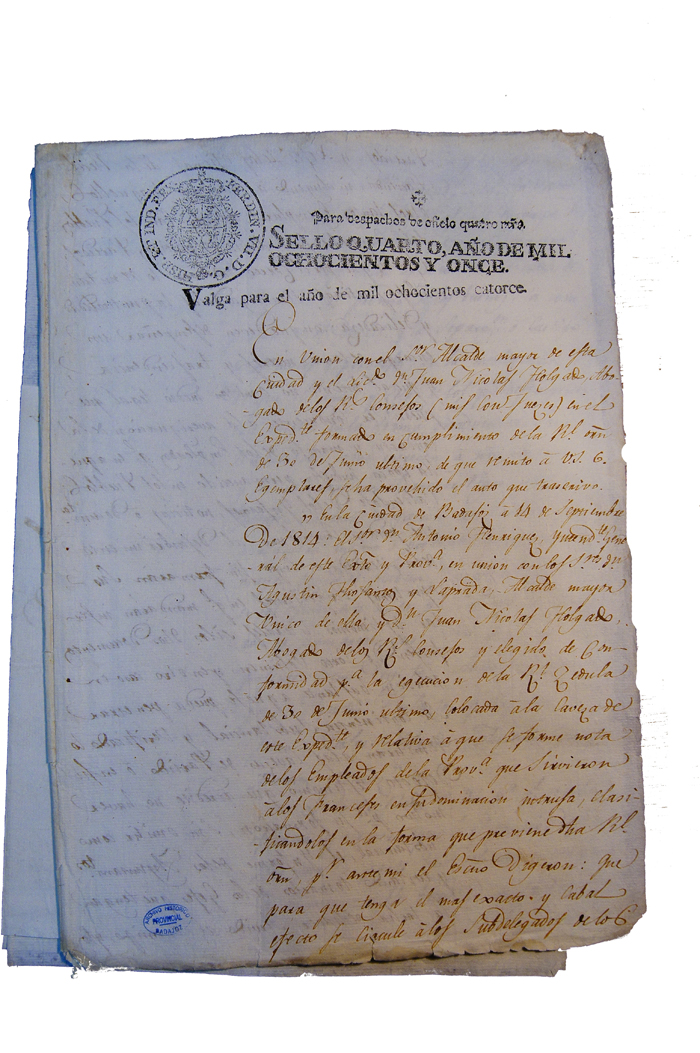 HISP. ET IND. REX FERDIN. VII. D. G.
Para despachos de oficio quatro mrs.
SELLO QUARTO, AÑO DE MIL
OCHOCIENTOS Y ONCE.
Valga para el año de mil ochocientos catorce.
En Union con el Sr. Alcalde mayor de esta
Ciudad y el dn. Juan Nicolas Holgado, Abo-
gado de los Rs. Consejos (mis Con Jueces) en el
Expedte. formado en cumplimiento de la Rl. orn.
de 30 de Junio ultimo, de que remito à VS. 6.
Egemplares, se ha provehido el auto que trascrivo.
En la Ciudad de Badajoz à 14 de Septiembre
De 1814: el Sor. dn. Antonio Henriquez, Yntendte. Gene-
ral de este Exto. y Prova., en union con los Sres. dn.
Agustin y Laprada, Alcalde mayor
Unico de ella, y dn. Juan Nicolas Holgado,
Abogado de los Rs. Consejos y elegido de Con-
formidad pa. la egecucion de la Rl. Zedula
de 30 de Junio ultimo, colocada à la Caveza de
este Expedte. y relativa à que se forme nota
de los Empleados de la Prova. que sirvieron
à los Franceses en su dominacion intrusa, clasi-
ficandolos en la forma que previene dha Rl.
orn., pr. ante mi el Escno. Digeron: Que
para que tenga el mas exacto y cabal
efecto se circule à los Subdelegados de los 6
ARCHIVO HISTORICO
PROVINCIAL
BADAJOZ